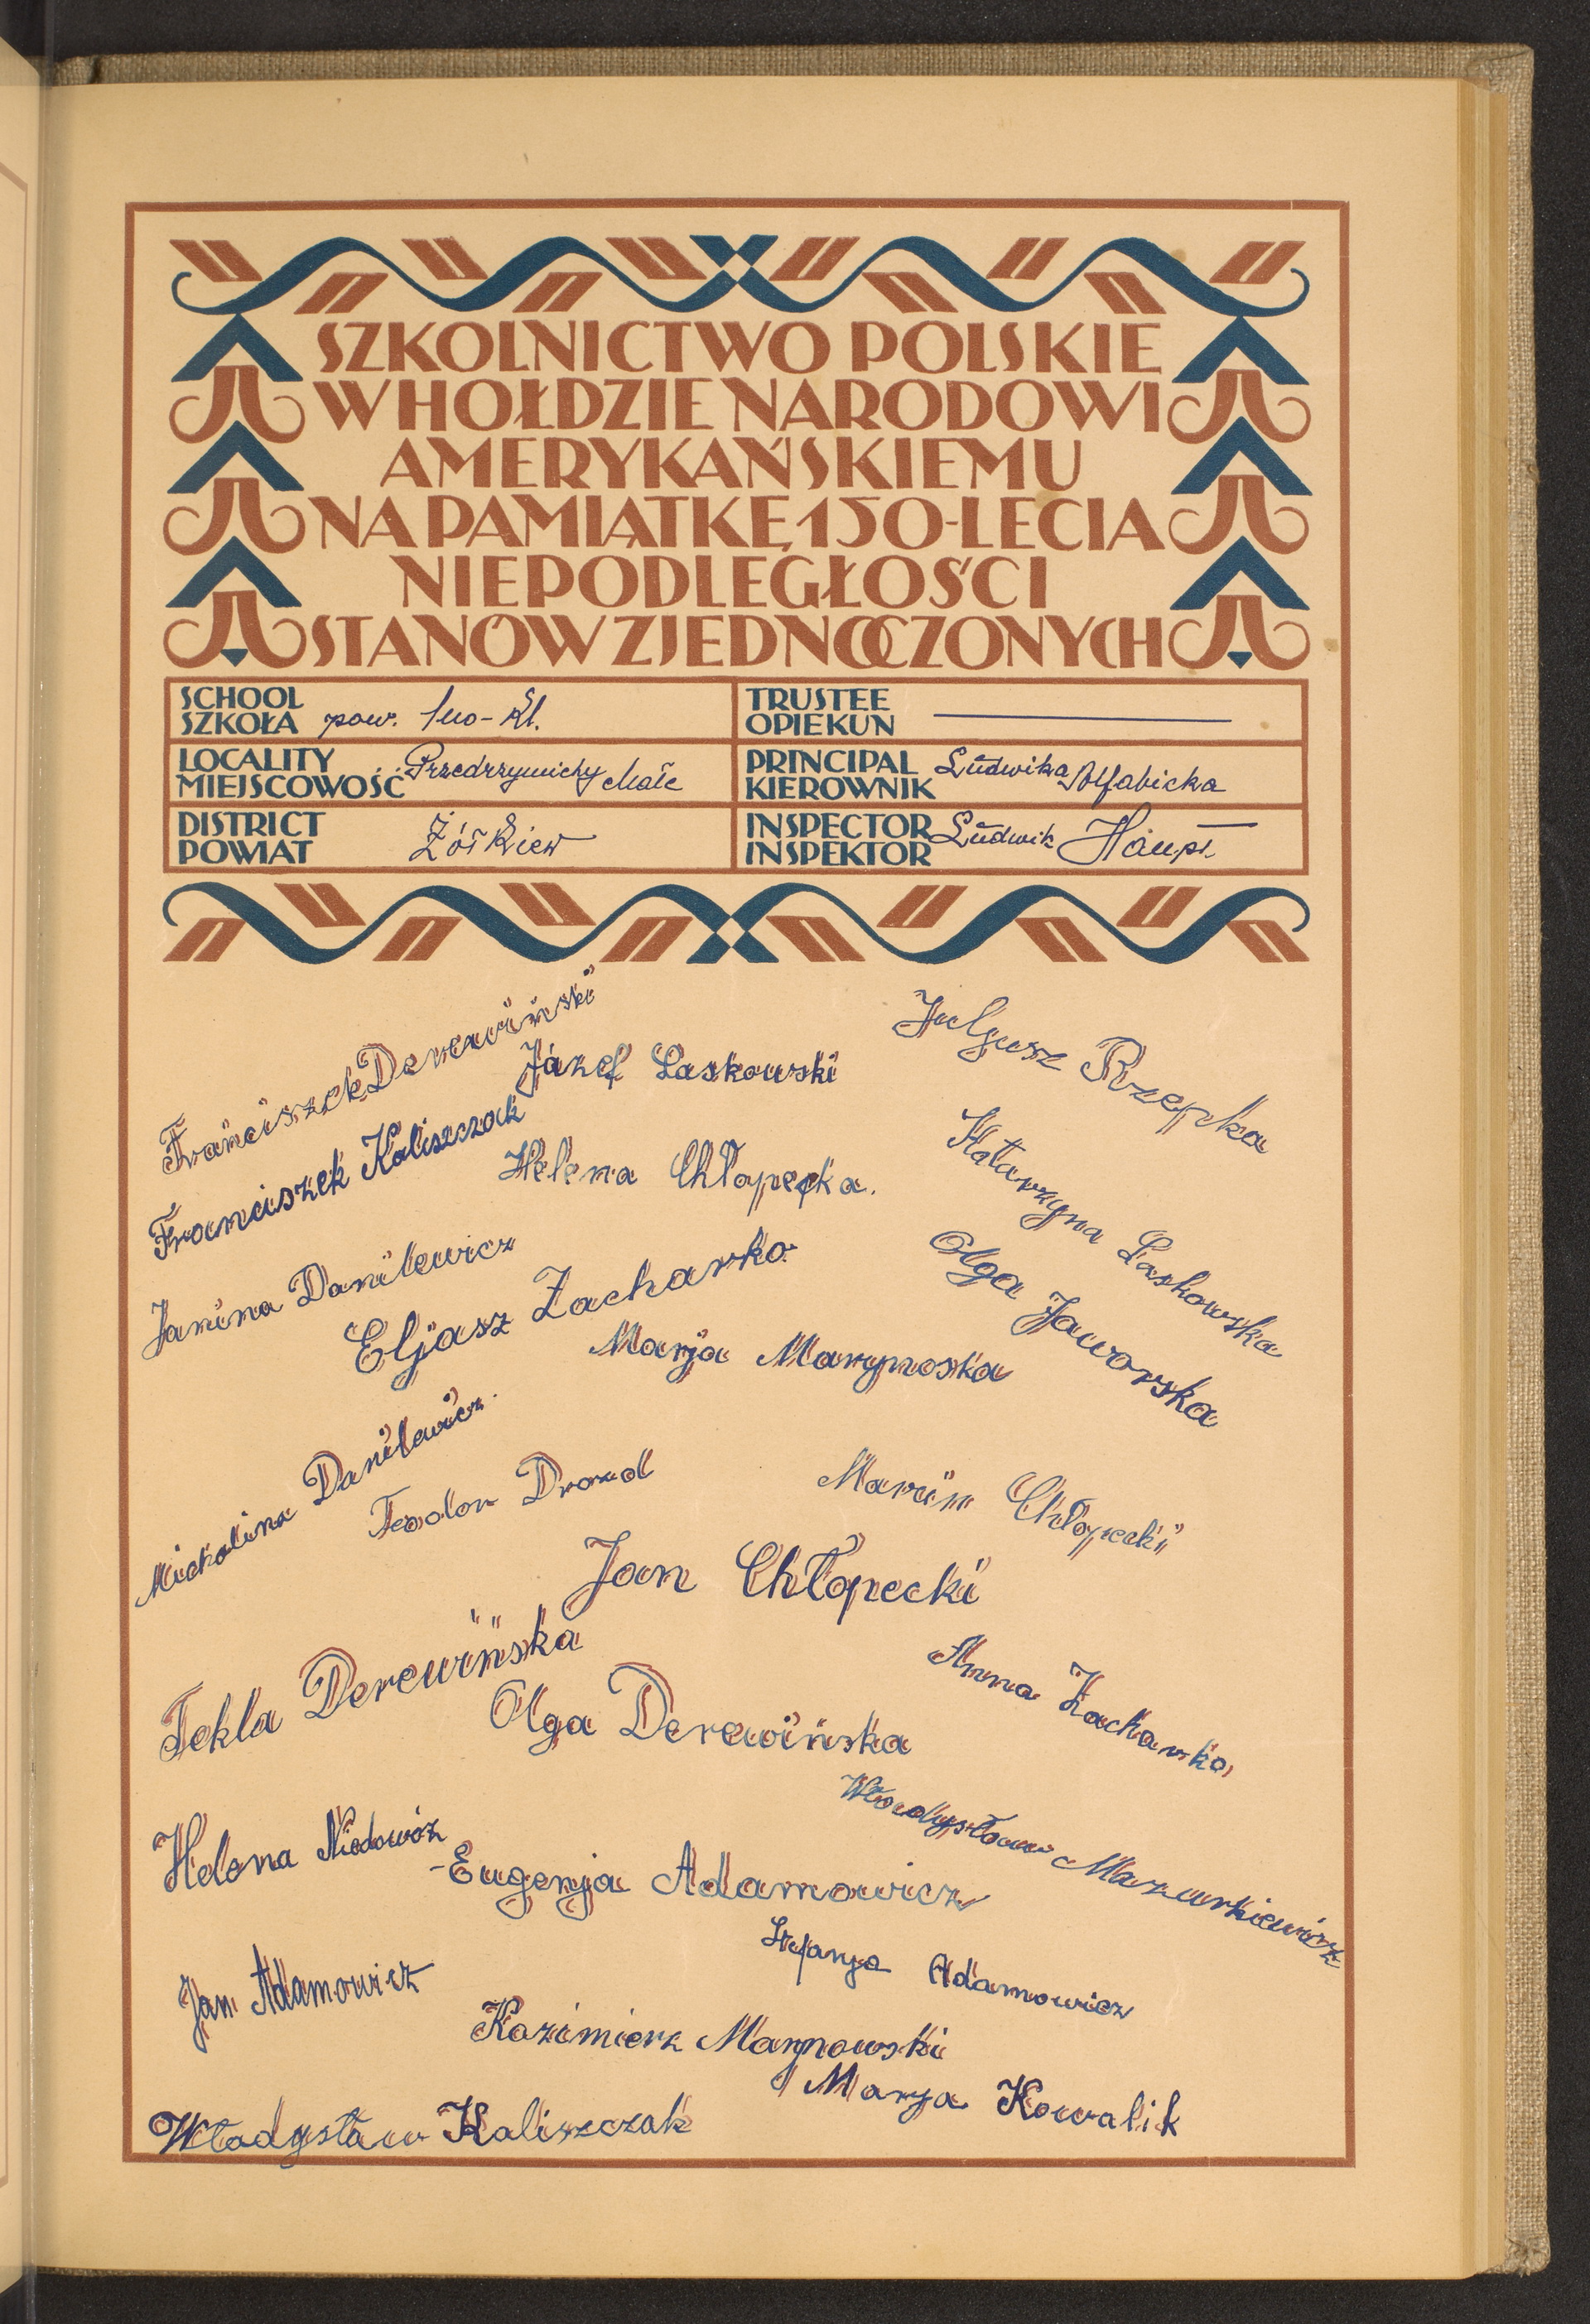 SZKOLNICTWO POLSKIE
W HOŁDZIE NARODOWI
AMERYKAŃSKIEMU
NA PAMIĄTKĘ 150-LECIA
NIEPODLEGŁOŚCI
STANÓW ZJEDNOCZONYCH
SCHOOL
SZKOŁA pow. 1no-kl.
TRUSTEE
OPIEKUN
LOCALITY
MIEJSCOWOŚĆ Przedrzymichy Małe
PRINCIPAL
KIEROWNIK Ludwika
DISTRICT
POWIAT Żółkiew
INSPECTOR
INSPEKTOR Ludwik Haupt
Franciszek Derewiński
Józef Laskowski
Juljusz Rzepka
Franciszek Kaliszczak
Helena Chłopecka.
Katarzyna Laskowska
Janina Danilewicz
Eljasz Zacharko
Olga Jaworska
Marja Marynoska
Michalina Danilewicz
Teodor Drozd
Marcin Chłopecki
Jan Chłopecki
Tekla Derewińska
Olga Derewińska
Anna Zacharko
Helena Niedowóz
Władysław Mazurkiewicz
Eugenja Adamowicz
Stefanja Adamowicz
Jan Adamowicz
Kazimierz Marynowski
Marya Kowalik
Władysław Kaliszczak